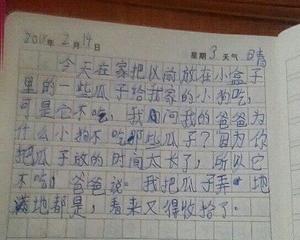 2018年2月14日 星期3天气晴
今天在家把以前放在小盒子
里的一些瓜子给我家的小狗吃,
可是它不吃,我问我的爸爸为
什么小狗不吃那些瓜子?因为你
把瓜子放的时间太长了,所以它
不吃,爸爸说 我把瓜子弄 地
满地都是,看来又得收拾了.